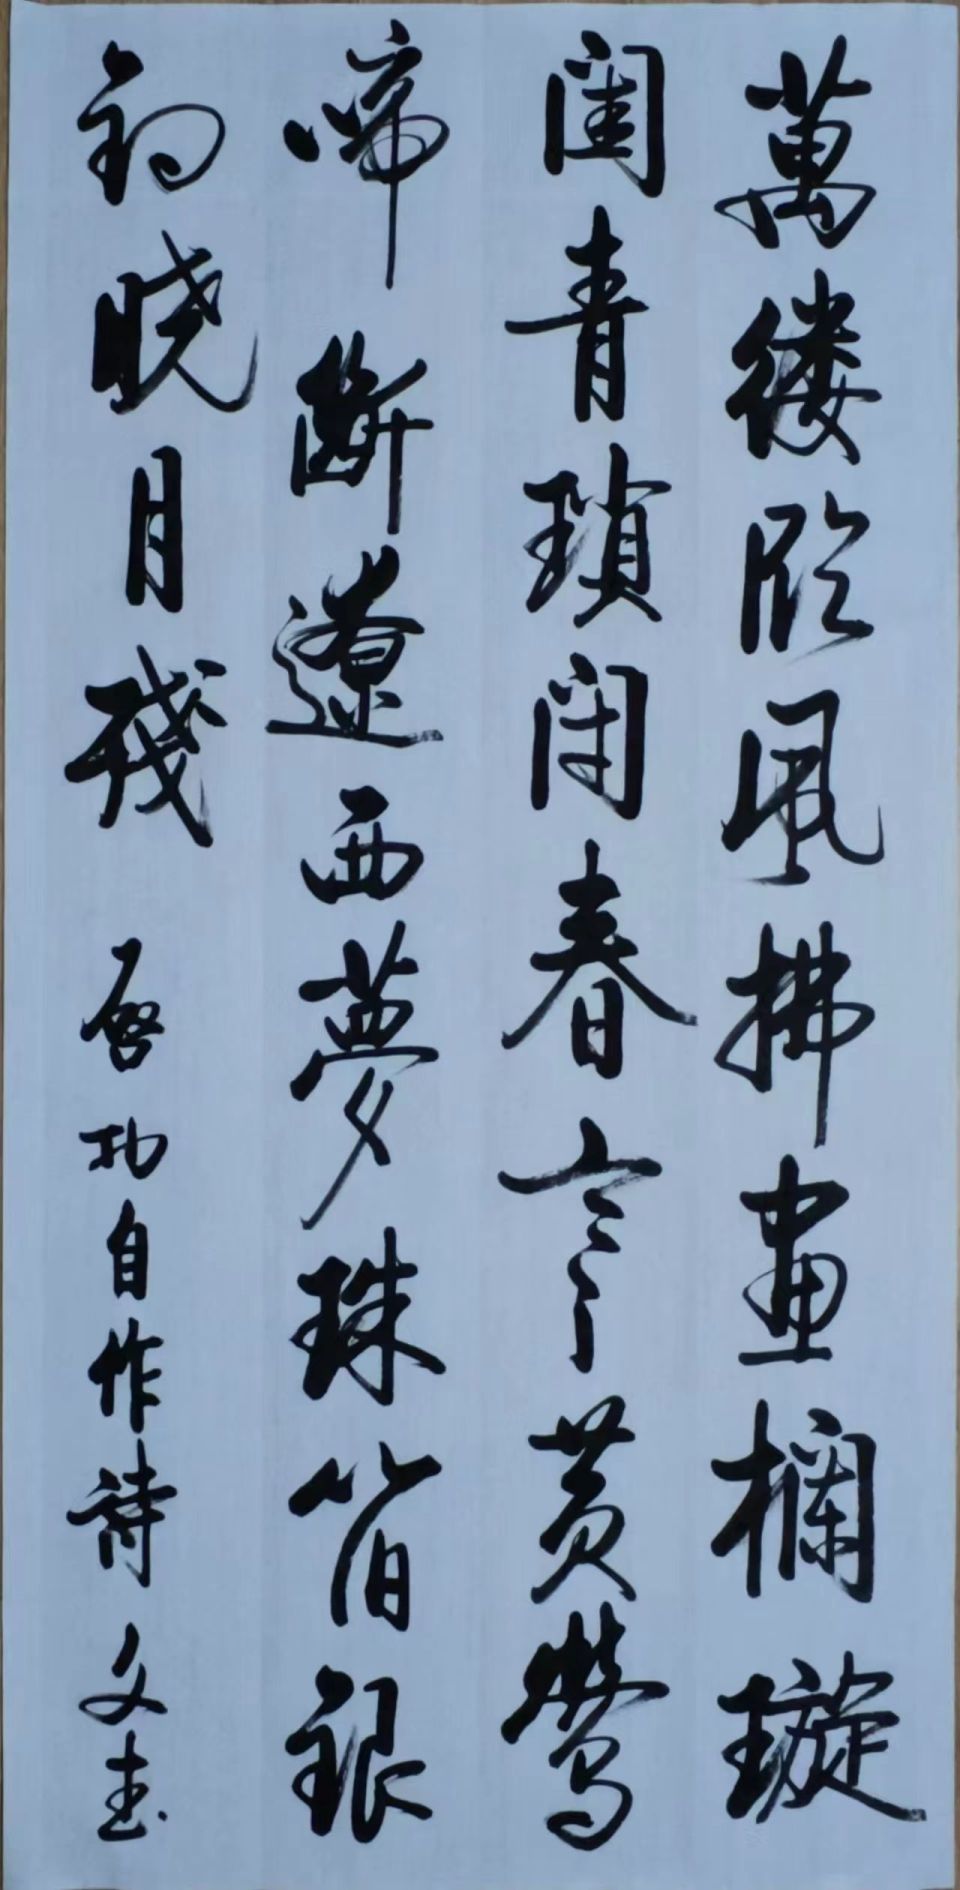 萬缕临風拂畫欄璇
閨青瑣闭春寒黄鶯
啼斷遼西夢珠箔銀
鈎晓月殘 啓功自作詩 文書